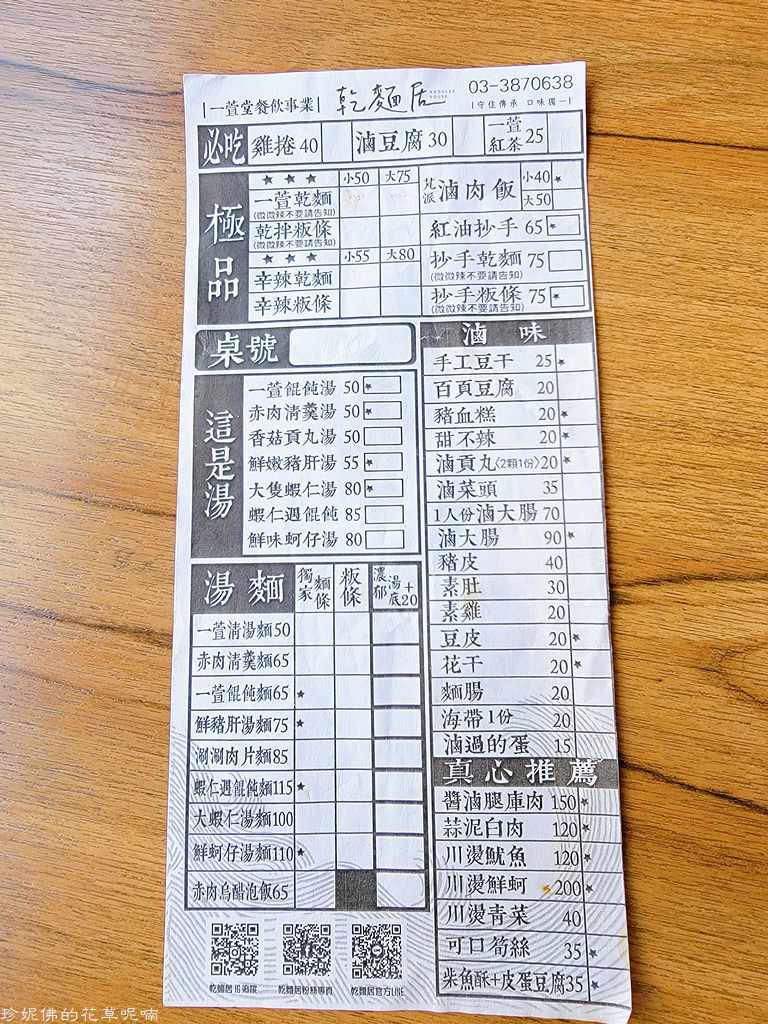 |一萱堂餐飲事業| 乾麵居 NOODLES HOUSE 03-3870638
|守住傳承 口味獨一|
必吃 雞捲 40 滷豆腐 30 一萱紅茶 25
極品
★ ★ ★ 小50 大75
一萱乾麵
(微微辣不要請告知)
乾拌粄條
(微微辣不要請告知)
★ ★ ★ 小55 大80
辛辣乾麵
辛辣粄條
滷肉飯 小40 ★
大50
紅油抄手 65 ★
抄手乾麵 75
(微微辣不要請告知)
抄手粄條 75 ★
(微微辣不要請告知)
桌號
這是湯
一萱餛飩湯 50 ★
赤肉清羹湯 50 ★
香菇貢丸湯 50
鮮嫩豬肝湯 55 ★
大隻蝦仁湯 80 ★
蝦仁遇餛飩 85
鮮味蚵仔湯 80
湯麵 獨家麵條 粄條 濃郁湯底+20
一萱清湯麵50
赤肉清羹麵65
一萱餛飩麵65 ★
鮮豬肝湯麵75 ★
涮涮肉片麵85
蝦仁遇餛飩麵115 ★
大蝦仁湯麵100
鮮蚵仔湯麵110 ★
赤肉烏醋泡飯65
滷味
手工豆干 25 ★
百頁豆腐 20
豬血糕 20 ★
甜不辣 20 ★
滷貢丸〈2顆1份〉20 ★
滷菜頭 35
1人份滷大腸 70
滷大腸 90 ★
豬皮 40
素肚 30
素雞 20
豆皮 20 ★
花干 20 ★
麵腸 20
海帶1份 20
滷過的蛋 15
真心推薦
醬滷腿庫肉 150 ★
蒜泥白肉 120 ★
川燙魷魚 120 ★
川燙鮮蚵 200 ★
川燙青菜 40
可口筍絲 35 ★
柴魚酥+皮蛋豆腐35 ★
乾麵居IG追蹤 乾麵居粉絲專頁 乾麵居官方LINE
珍妮佛的花草呢喃